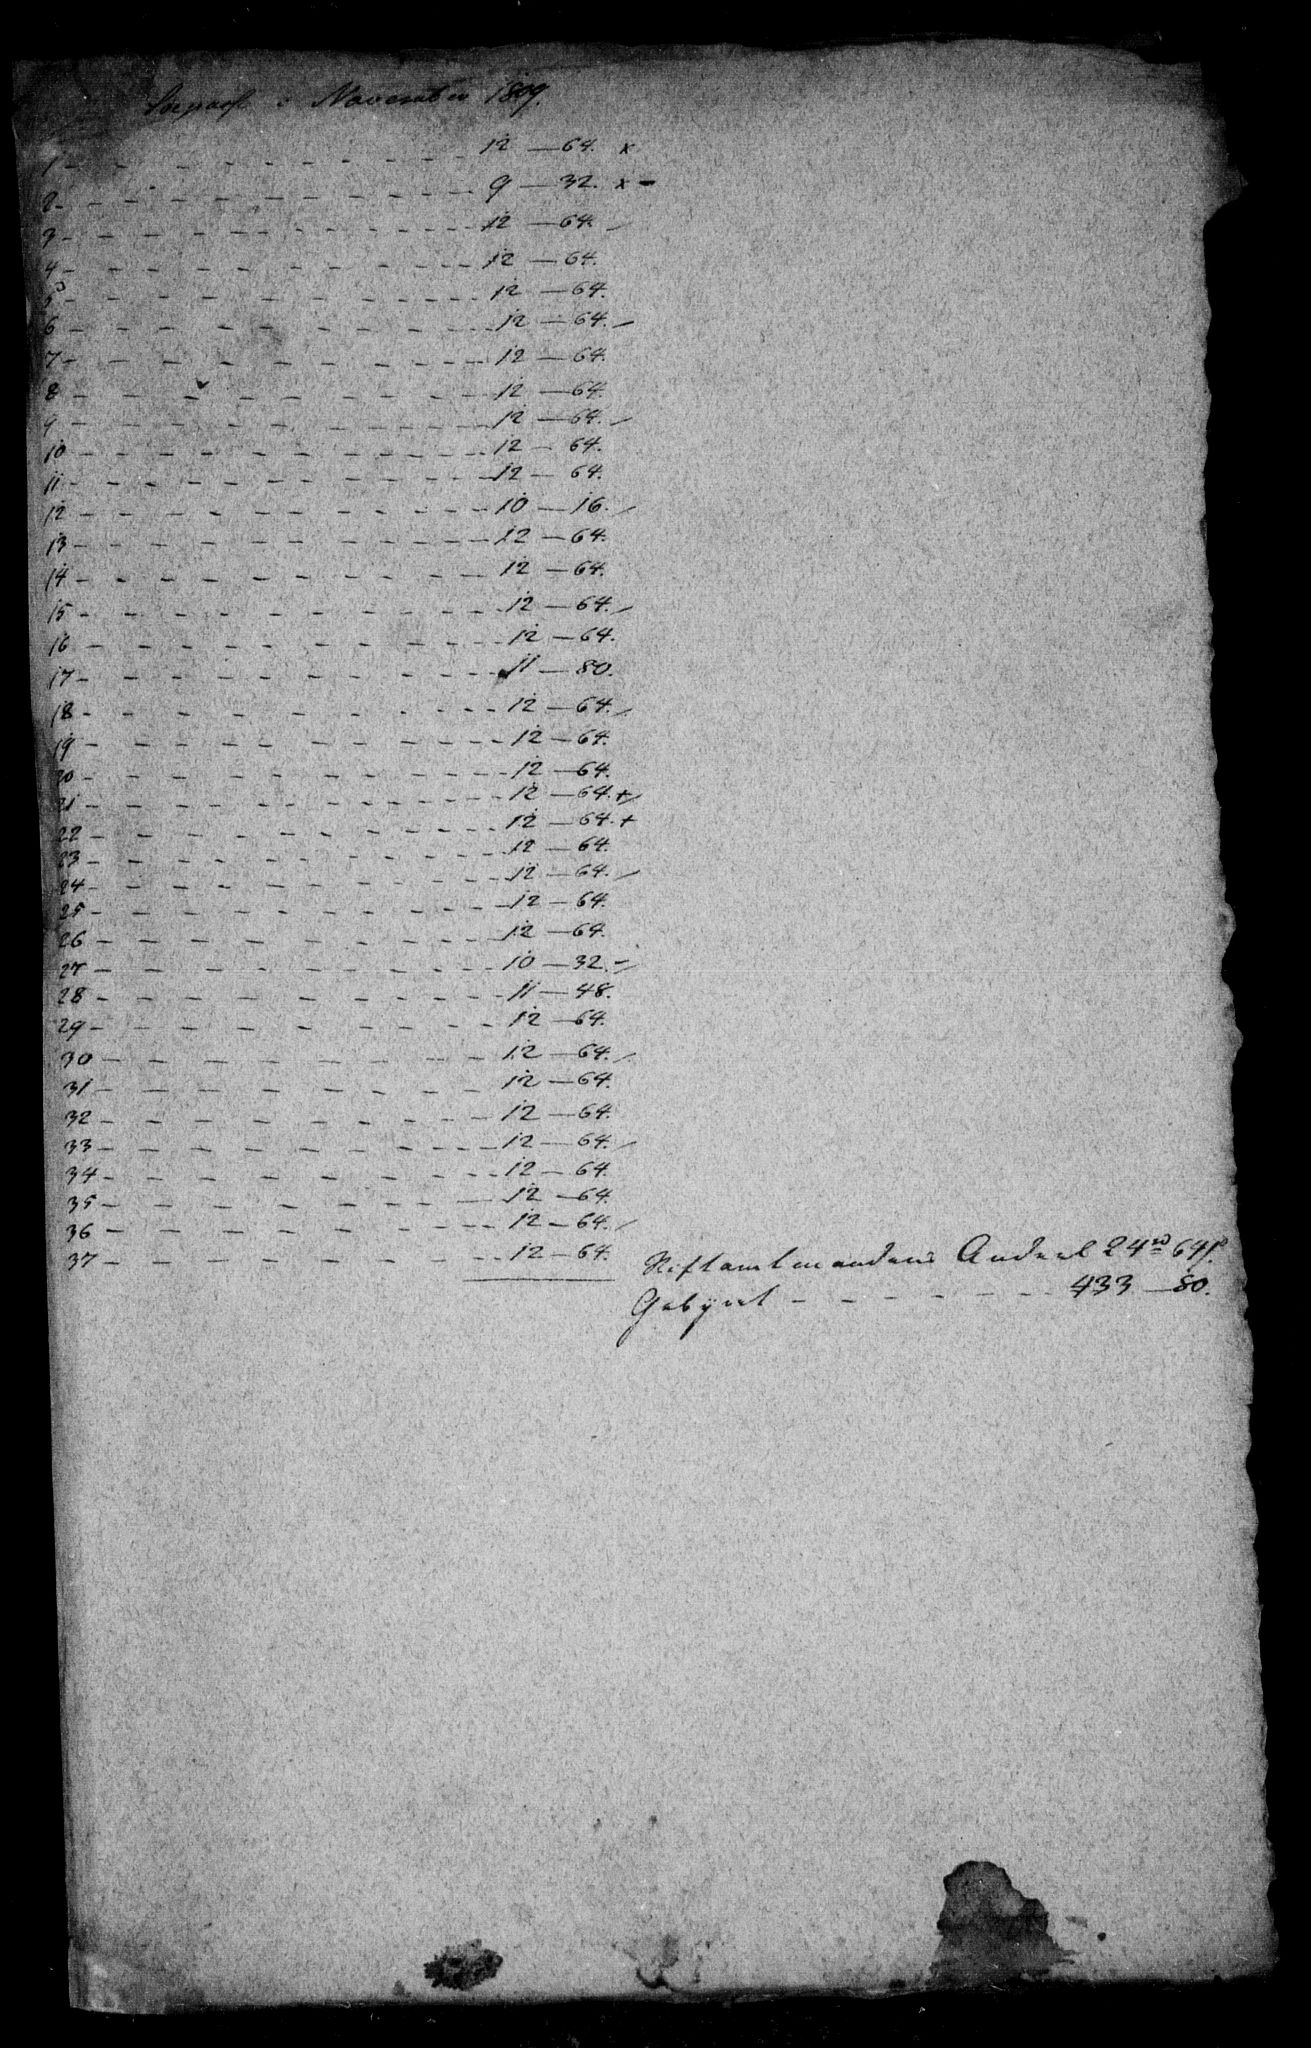 Søepass i November 1809.
1 - - - - - - - - - - 12 - 64. x
2 - - - - - - - - - - 9 - 32. x -
3 - - - - - - - - - - 12 - 64.
4 - - - - - - - - - - 12 - 64.
5 - - - - - - - - - - 12 - 64.
6 - - - - - - - - - - 12 - 64.
7 - - - - - - - - - - 12 - 64.
8 - - - - - - - - - - 12 - 64.
9 - - - - - - - - - - 12 - 64.
10 - - - - - - - - - - 12 - 64.
11 - - - - - - - - - - 12 - 64.
12 - - - - - - - - - - 10 - 16.
13 - - - - - - - - - - 12 - 64.
14 - - - - - - - - - - 12 - 64.
15 - - - - - - - - - - 12 - 64.
16 - - - - - - - - - - 12 - 64.
17 - - - - - - - - - - 11 - 80.
18 - - - - - - - - - - 12 - 64.
19 - - - - - - - - - - 12 - 64.
20 - - - - - - - - - - 12 - 64.
21 - - - - - - - - - - 12 - 64. +
22 - - - - - - - - - - 12 - 64. +
23 - - - - - - - - - - 12 - 64.
24 - - - - - - - - - - 12 - 64.
25 - - - - - - - - - - 12 - 64.
26 - - - - - - - - - - 12 - 64.
27 - - - - - - - - - - 10 - 32. -
28 - - - - - - - - - - 11 - 48.
29 - - - - - - - - - - 12 - 64.
30 - - - - - - - - - - 12 - 64.
31 - - - - - - - - - - 12 - 64.
32 - - - - - - - - - - 12 - 64.
33 - - - - - - - - - - 12 - 64.
34 - - - - - - - - - - 12 - 64.
35 - - - - - - - - - - 12 - 64.
36 - - - - - - - - - - 12 - 64.
37 - - - - - - - - - - 12 - 64.
Stiftamtmandens Andeel 24 rd 64 s.
Gebyret - - - - - - 433 - 80.